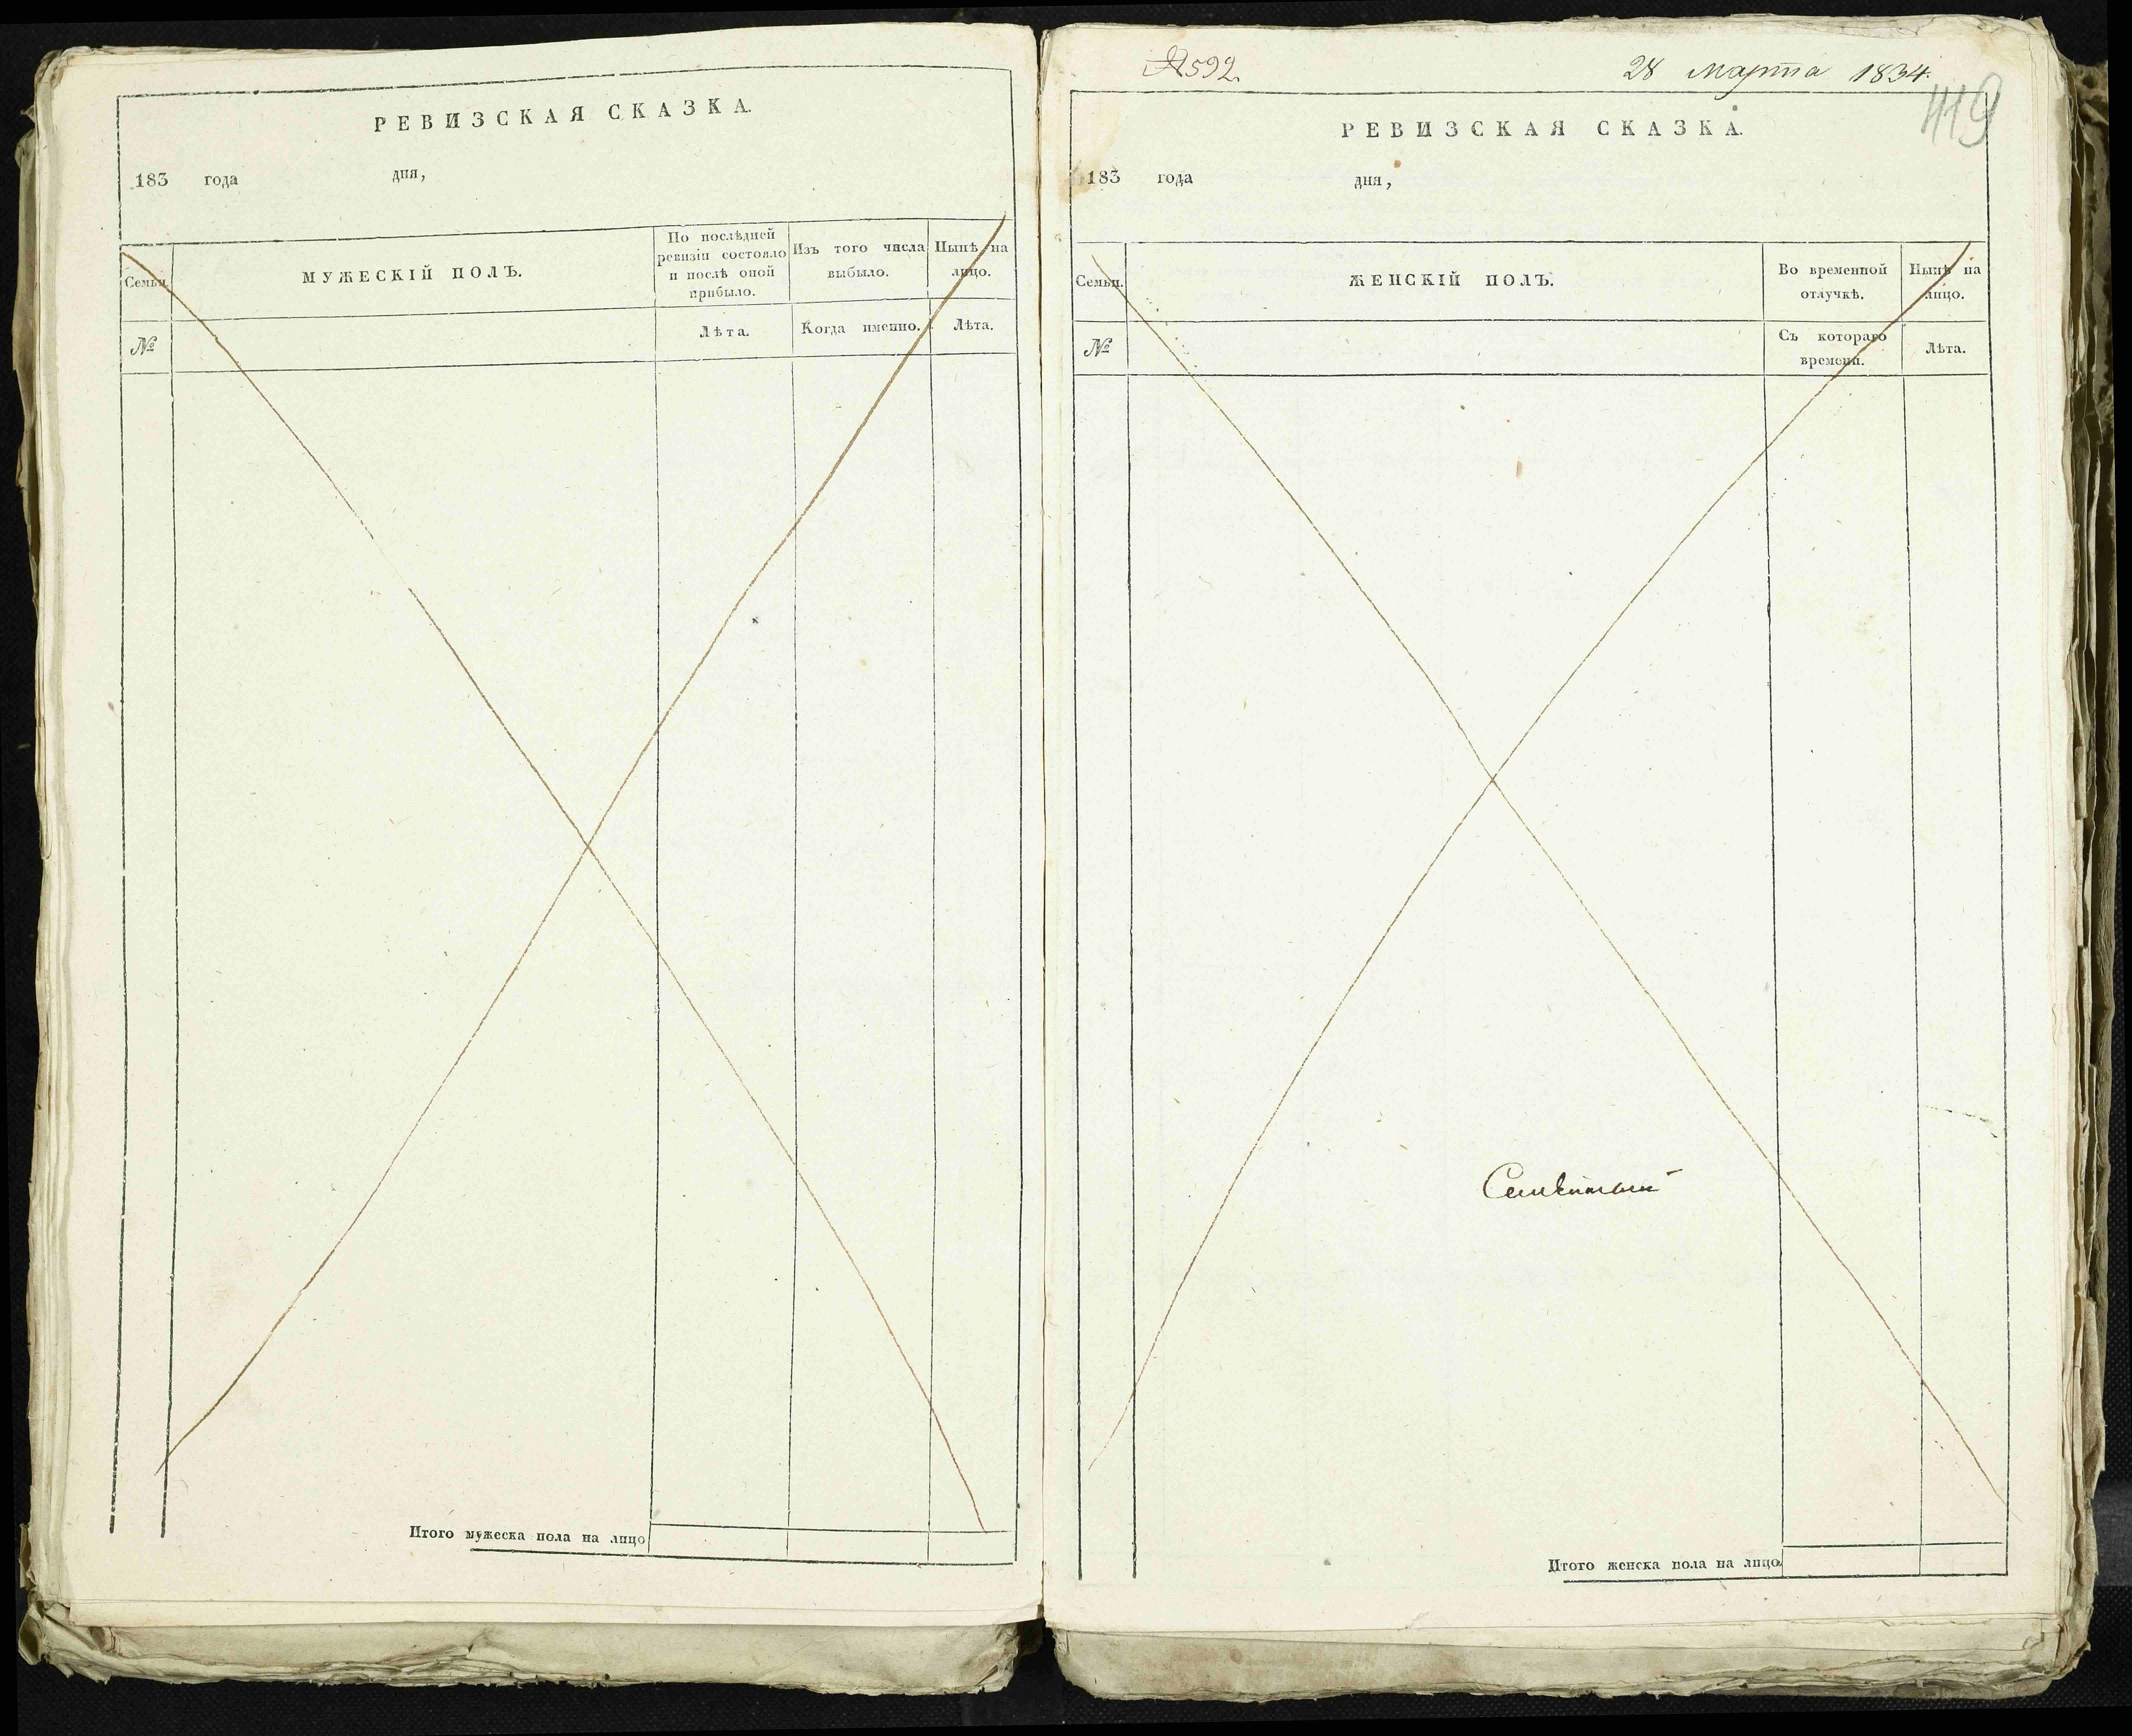 РЕВИЗСКАЯ СКАЗКА.
183 года дня,
Семьи.
МУЖЕСКІЙ ПОЛЪ.
По послѣдней ревизіи состояло и послѣ оной прибыло.
Изъ того числа выбыло.
Нынѣ на лицо.
№
Лѣта.
Когда именно.
Лѣта.
Итого мужеска пола на лицо
№592.
28 Марта 1834.
119
РЕВИЗСКАЯ СКАЗКА.
183 года дня,
Семьи.
ЖЕНСКІЙ ПОЛЪ.
Во временной отлучкѣ.
Нынѣ на лицо.
№
Съ котораго времени.
Лѣта.
Итого женска пола на лицо